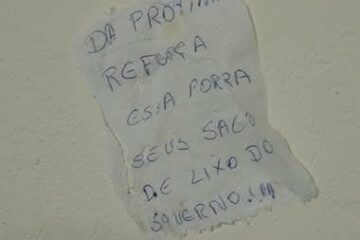 DA PRÓXIMA
REFORÇA
ESSA PORRA
SEUS SACO
DE LIXO DO
GOVERNO!!!